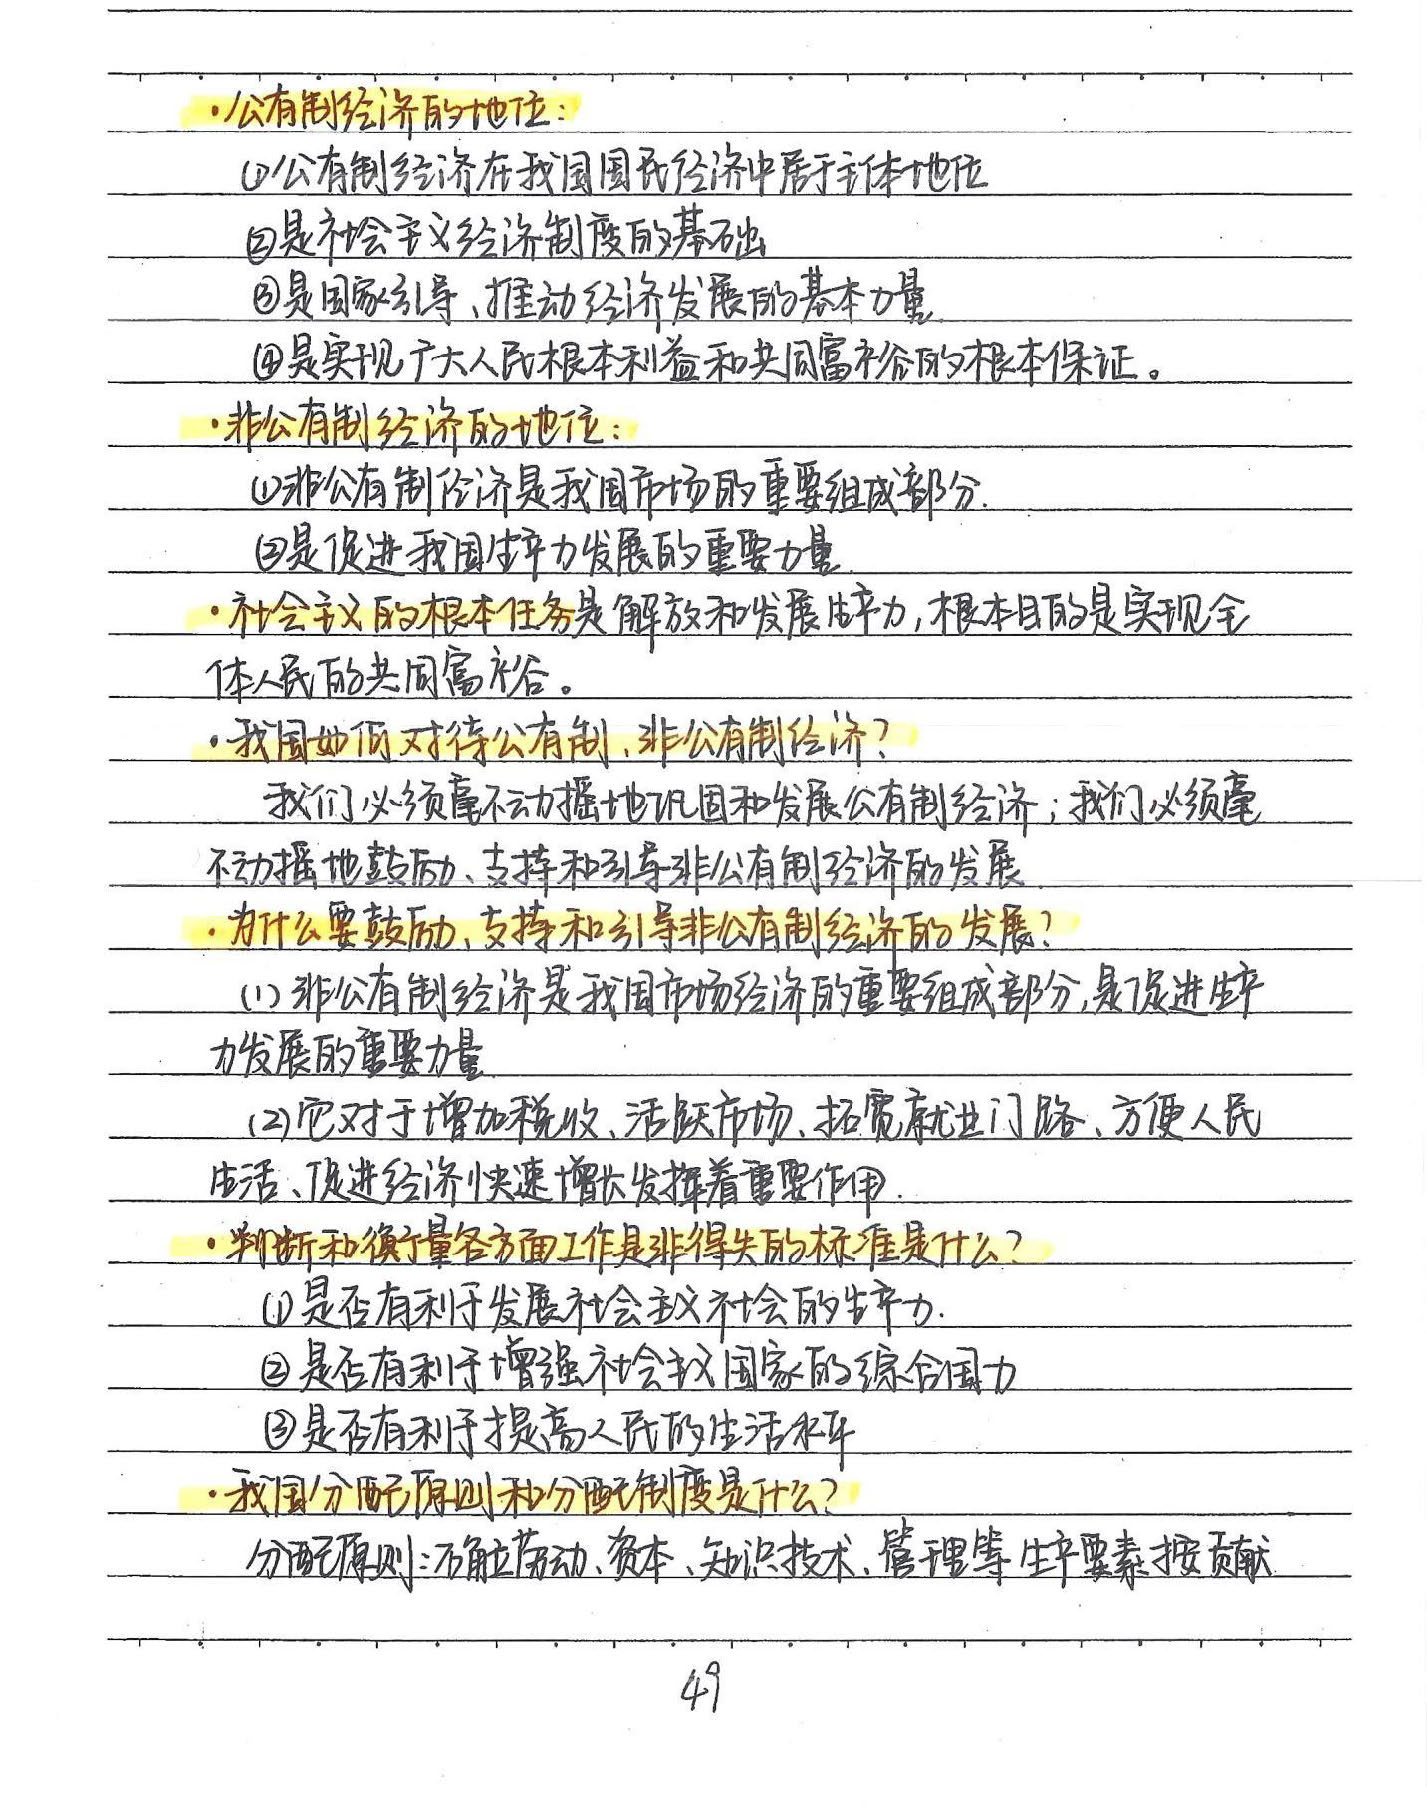 ·公有制经济的地位：
①公有制经济在我国国民经济中居于主体地位
②是社会主义经济制度的基础
③是国家引导、推动经济发展的基本力量
④是实现广大人民根本利益和共同富裕的根本保证。
·非公有制经济的地位：
①非公有制经济是我国市场的重要组成部分.
②是促进我国生产力发展的重要力量.
·社会主义的根本任务是解放和发展生产力，根本目的是实现全
体人民的共同富裕。
·我国如何对待公有制、非公有制经济？
我们必须毫不动摇地巩固和发展公有制经济；我们必须毫
不动摇地鼓励、支持和引导非公有制经济的发展.
·为什么要鼓励、支持和引导非公有制经济的发展？
(1)非公有制经济是我国市场经济的重要组成部分，是促进生产
力发展的重要力量
(2)它对于增加税收、活跃市场、拓宽就业门路、方便人民
生活、促进经济快速增长发挥着重要作用.
·判断和衡量各方面工作是非得失的标准是什么？
①是否有利于发展社会主义社会的生产力.
②是否有利于增强社会主义国家的综合国力
③是否有利于提高人民的生活水平
·我国分配原则和分配制度是什么？
分配原则：确立劳动、资本、知识技术、管理等生产要素按贡献
49